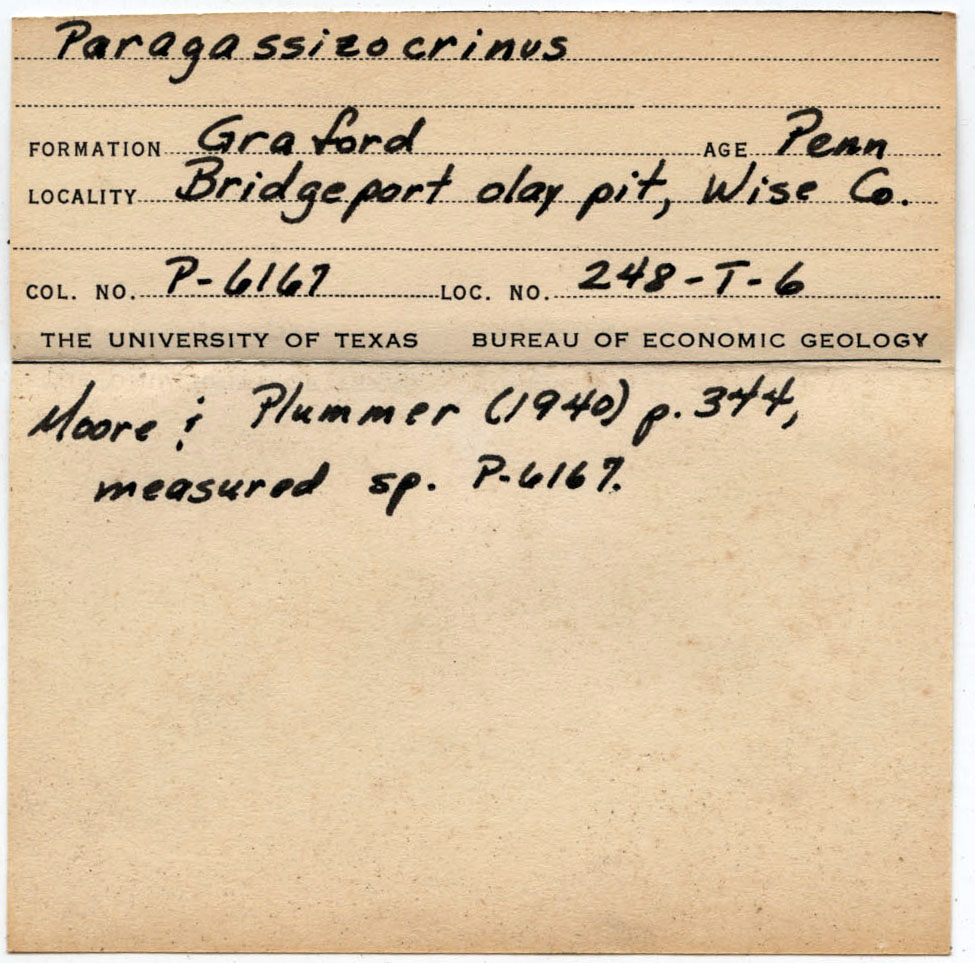 Paragassizocrinus
FORMATION Graford AGE Penn
LOCALITY Bridgeport clay pit, Wise Co.
COL. NO. P-6167 LOC. NO. 248-T-6
THE UNIVERSITY OF TEXAS BUREAU OF ECONOMIC GEOLOGY
Moore & Plummer (1940) p. 344,
measured sp. P-6167.